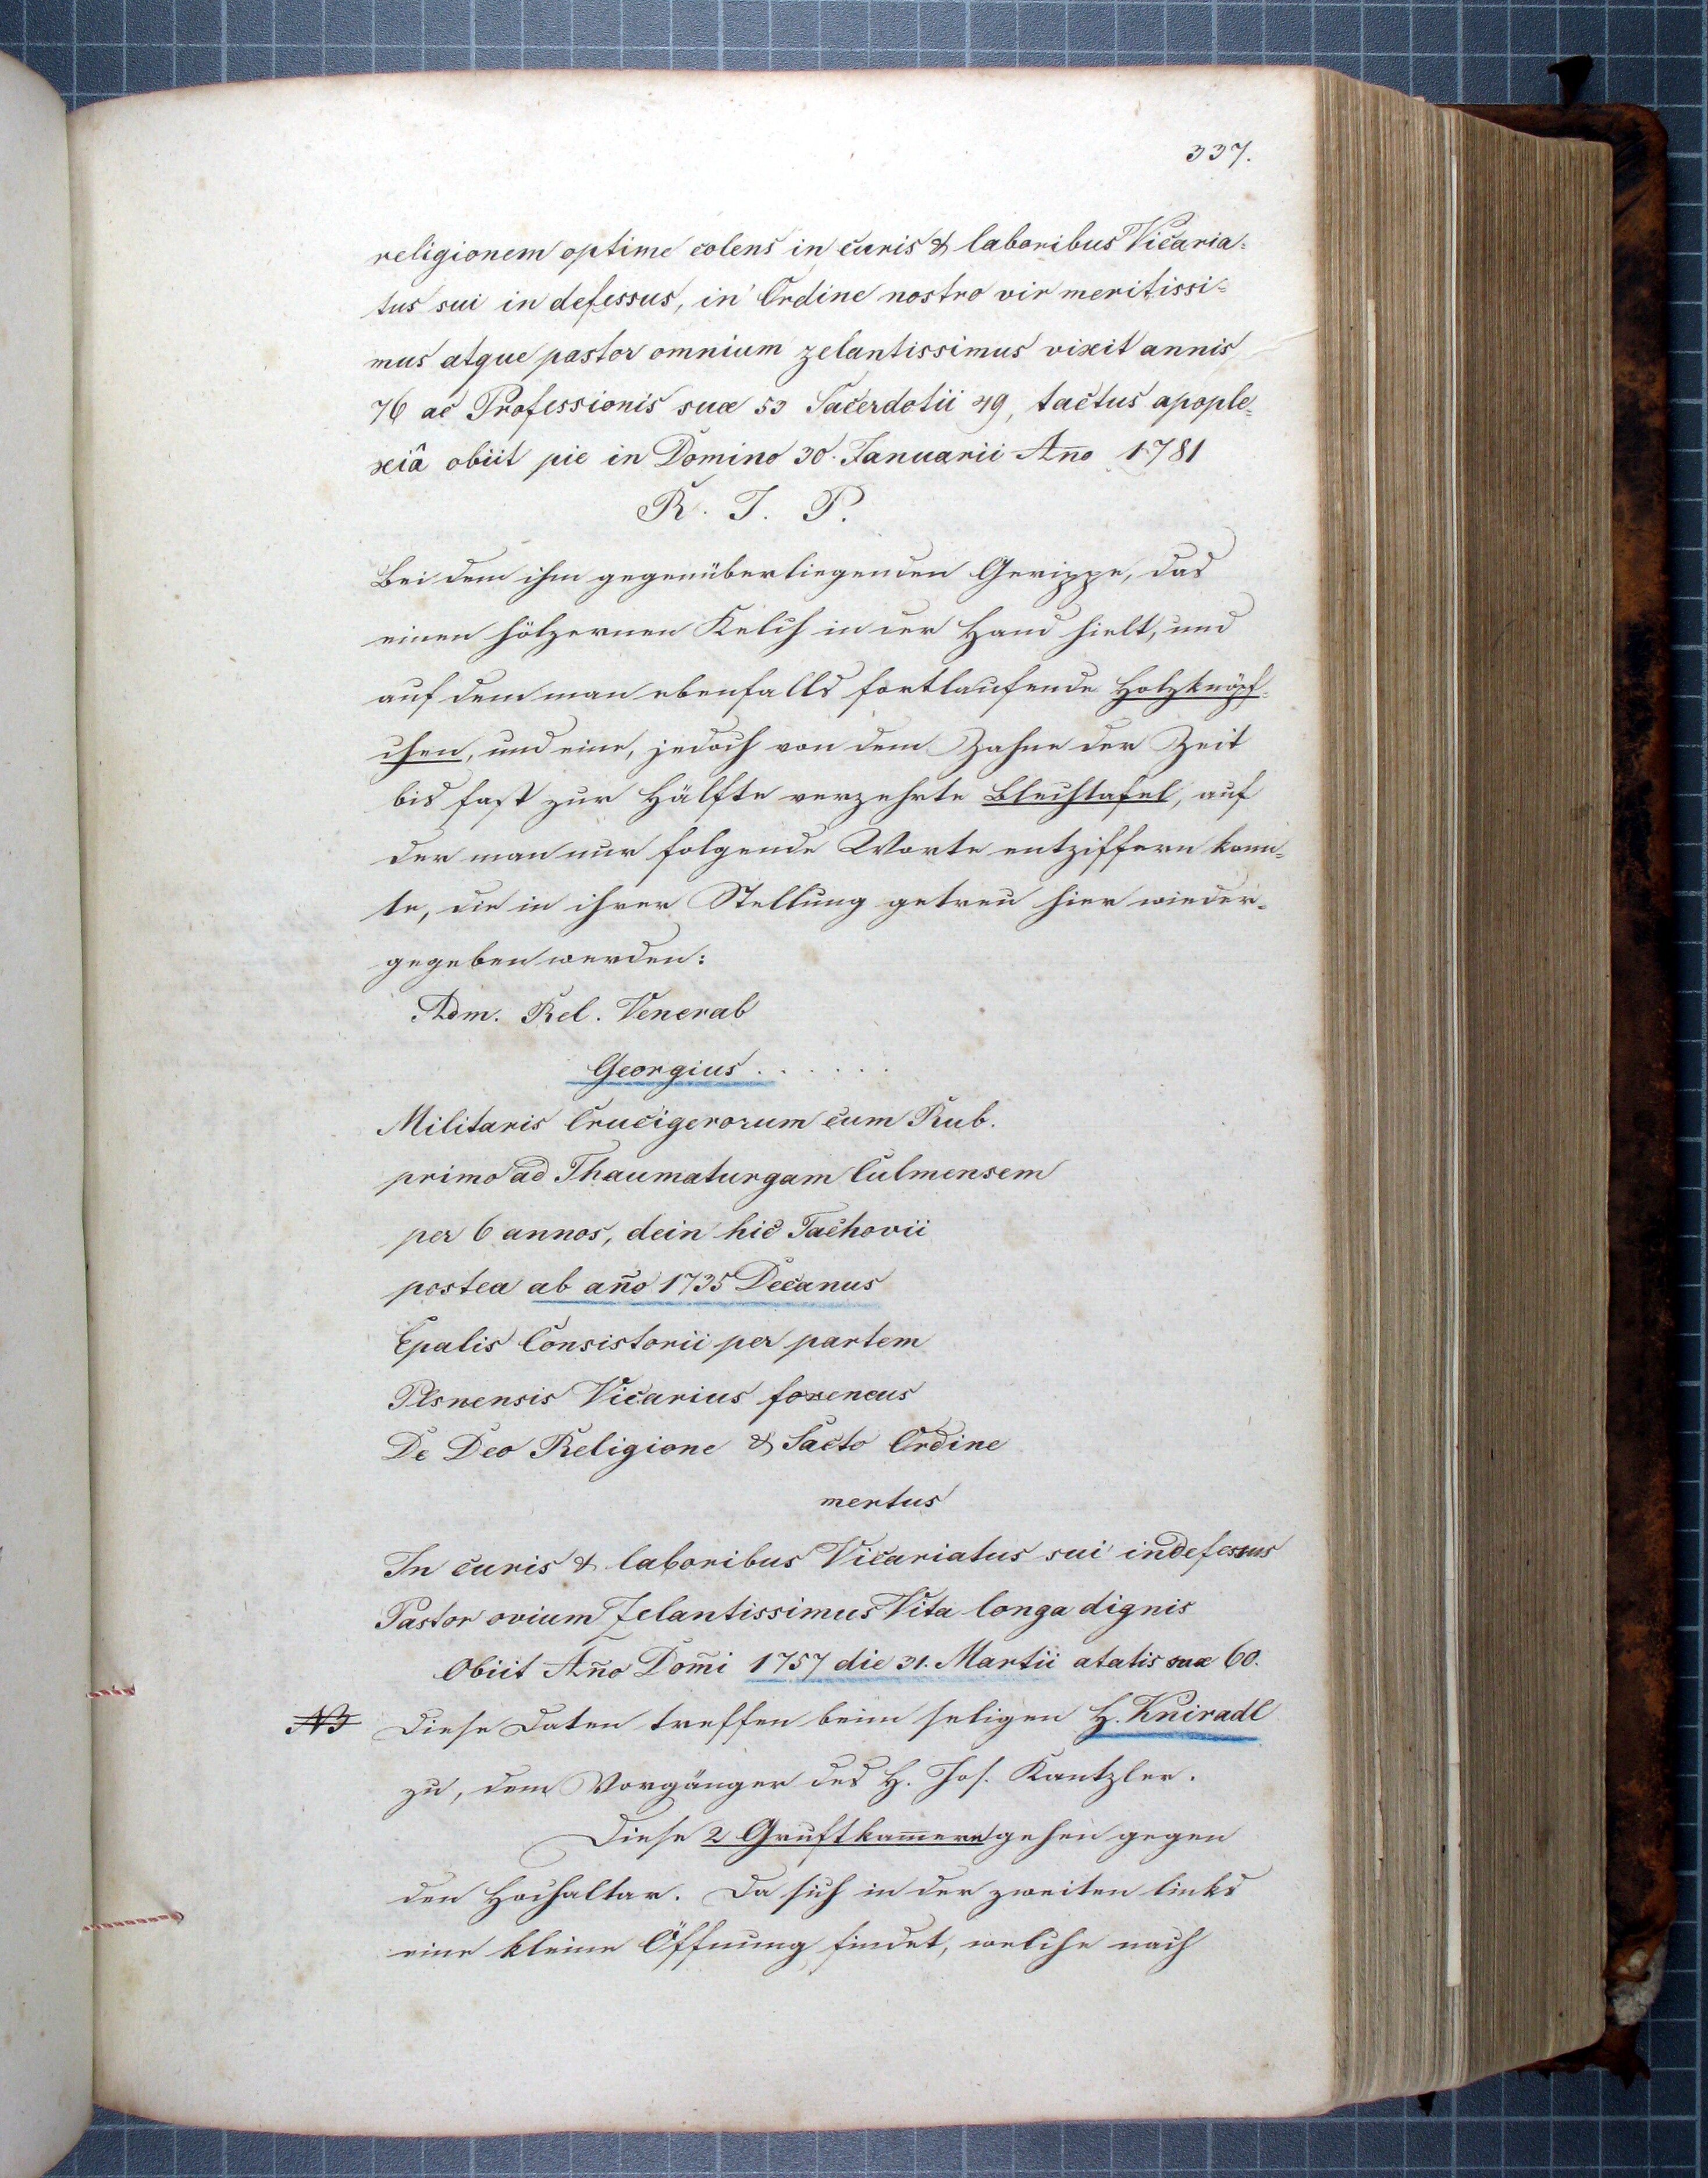 337.
religionem optime colens in curis & laboribus Vicaria=
tus sui in defessus, in Ordine nostro vir meritissi=
mus atque pastor omnium zelantissimus vixit annis
76 ac Professionis suæ 53 Sacerdotii 49, tactus apople=
xiâ obiit pie in Domino 30. Januarii Ano 1781
R. I. P.
Bei dem ihm gegenüberliegenden Gerippe, das
einen hölzernen Kelch in der Hand hielt, und
auf dem man ebenfalls fortlaufende Holzknöpf=
chen, und eine, jedoch von dem Zahne der Zeit
bis fast zur Hälfte verzehrte Blechtafel, auf
der man nur folgende Worte entziffern konn=
te, die in ihrer Stellung getreu hier wieder=
gegeben werden:
Adm. Rel. Venerab
Georgius . . . . . .
Militaris Crucigerorum cum Rub.
primo ad Thaumaturgam Culmensem
per 6 annos, dein hic Tachovii
postea ab año 1735 Decanus
Epalis Consistorii per partem
Plsnensis Vicarius foreneus
De Deo Religione & Sacto Ordine
mertus
In curis & laboribus Vicariatus sui indefessus
Pastor ovium Zelantissimus Vita longa dignis
Obiit Año Domi 1757 die 31. Martii atatis suæ 60.
NB Diese Daten treffen beim seligen H. Kniradl
zu, dem Vorgänger des H. Jos. Kantzler.
Diese 2 Gruftkam̅ern gehen gegen
den Hochaltar. Da sich in der zweiten links
eine kleine Öffnung findet, welche nach